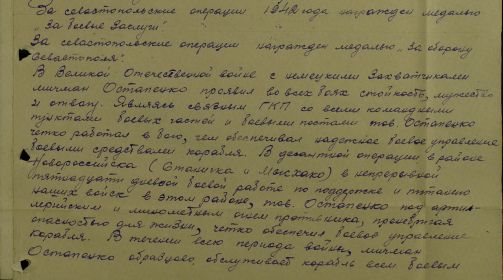 За севастопольские операции 1942 года награжден медалью
„За боевые Заслуги".
За севастопольские операции награжден медалью „За оборону
Севастополя".
В Великой Отечественной войне с немецкими Захватчиками
мичман Остапенко проявил во всех боях стойкость, мужество
и отвагу. Являясь связным ГКП со всеми командными
пунктами боевых частей и боевыми постами тов. Остапенко
четко работал в бою, чем обеспечивал надежное боевое управление
боевыми средствами корабля. В десантной операции в районе
Новороссийска (Станичка и Мысхако) в непрерывной
пятнадцати дневной боевой работе по поддержке и питанию
наших войск в этом районе, тов. Остапенко под артил-
лерийским и минометным огнем противника, пренебрегая
опасностью для жизни, четко обеспечил боевое управление
корабля. В течении всего периода войны, мичман
Остапенко образцово обслуживает корабль всем боевым